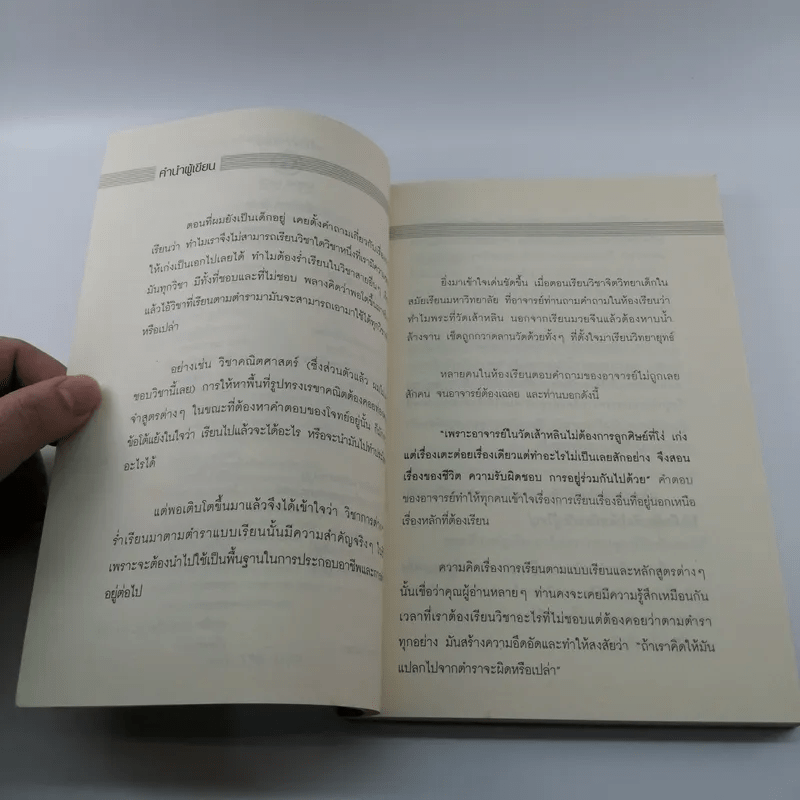 คำนำผู้เขียน
ตอนที่ผมยังเป็นเด็กอยู่ เคยตั้งคำถามเกี่ยวกับเรื่อง
เรียนว่า ทำไมเราจึงไม่สามารถเรียนวิชาใดวิชาหนึ่งที่เรามีความ
ให้เก่งเป็นเอกไปเลยได้ ทำไมต้องร่ำเรียนในวิชาสายอื่นๆ
มันทุกวิชา มีทั้งที่ชอบและที่ไม่ชอบ พลางคิดว่าพอโตขึ้นมา
แล้วไอ้วิชาที่เรียนตามตำรามามันจะสามารถเอามาใช้ได้ทุก
หรือเปล่า
อย่างเช่น วิชาคณิตศาสตร์ (ซึ่งส่วนตัวแล้ว ผม
ชอบวิชานี้เลย) การให้หาพื้นที่รูปทรงเรขาคณิตต้องคอย
จำสูตรต่างๆ ในขณะที่ต้องหาคำตอบของโจทย์อยู่นั้น
ข้อโต้แย้งในใจว่า เรียนไปแล้วจะได้อะไร หรือจะนำมันไปทำ
อะไรได้
แต่พอเติบโตขึ้นมาแล้วจึงได้เข้าใจว่า วิชาการต่าง
ร่ำเรียนมาตามตำราแบบเรียนนั้นมีความสำคัญจริงๆ
เพราะจะต้องนำไปใช้เป็นพื้นฐานในการประกอบอาชีพและการ
อยู่ต่อไป
ยิ่งมาเข้าใจเด่นชัดขึ้น เมื่อตอนเรียนวิชาจิตวิทยาเด็กใน
สมัยเรียนมหาวิทยาลัย ที่อาจารย์ท่านถามคำถามในห้องเรียนว่า
ทำไมพระที่วัดเส้าหลิน นอกจากเรียนมวยจีนแล้วต้องหาบน้ำ
ล้างจาน เช็ดถูกวาดลานวัดด้วยทั้งๆ ที่ตั้งใจมาเรียนวิทยายุทธ์
หลายคนในห้องเรียนตอบคำถามของอาจารย์ไม่ถูกเลย
สักคน จนอาจารย์ต้องเฉลย และท่านบอกดังนี้
"เพราะอาจารย์ในวัดเส้าหลินไม่ต้องการลูกศิษย์ที่โง่ เก่ง
แต่เรื่องเตะต่อยเรื่องเดียวแต่ทำอะไรไม่เป็นเลยสักอย่าง จึงสอน
เรื่องของชีวิต ความรับผิดชอบ การอยู่ร่วมกันไปด้วย" คำตอบ
ของอาจารย์ทำให้ทุกคนเข้าใจเรื่องการเรียนเรื่องอื่นที่อยู่นอกเหนือ
เรื่องหลักที่ต้องเรียน
ความคิดเรื่องการเรียนตามแบบเรียนและหลักสูตรต่างๆ
นั้นเชื่อว่าคุณผู้อ่านหลายๆ ท่านคงจะเคยมีความรู้สึกเหมือนกัน
เวลาที่เราต้องเรียนวิชาอะไรที่ไม่ชอบแต่ต้องคอยว่าตามตำรา
ทุกอย่าง มันสร้างความอึดอัดและทำให้สงสัยว่า "ถ้าเราคิดให้มัน
แปลกไปจากตำราจะผิดหรือเปล่า"